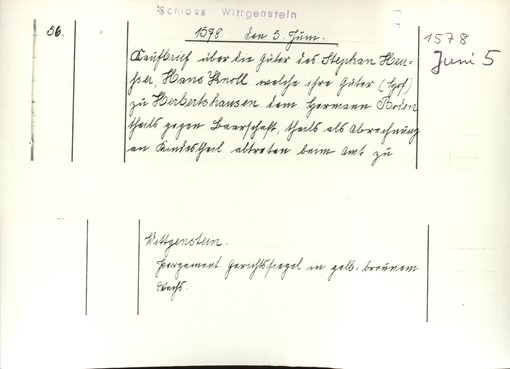 Schloss Wittgenstein
56.
1578. den 5. Juni.
1578
Juni 5
Kaufbrief über die Güter des Stephan Hen=
Hans Knoll welche ihre Güter (Hof)
zu Herbertshausen dem Hermann Boden
theils gegen Baarschaft, theils als Abrechnung
an Kindestheil abtreten beim Amt zu
Wittgenstein.
Pergament. Gerichtssiegel in gelb-braunem
Wachs.